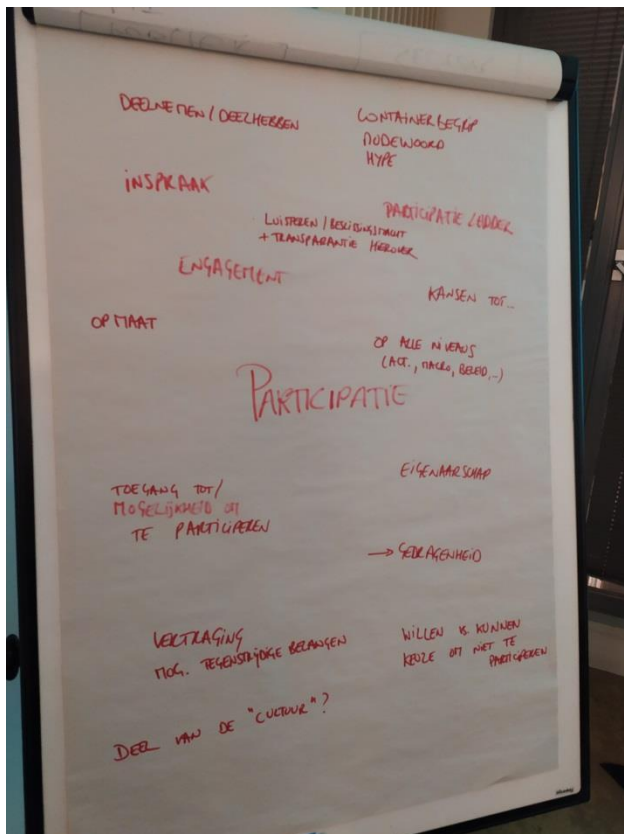 DEELNEMEN / DEELHEBBEN
CONTAINERBEGRIP
MODEWOORD
HYPE
INSPRAAK
PARTICIPATIE LADDER
LUISTEREN / BESLISSINGSMACHT
+ TRANSPARANTIE HIEROVER
ENGAGEMENT
KANSEN TOT...
OP MAAT
OP ALLE NIVEAUS
(ACT., MACRO, BELEID, ...)
PARTICIPATIE
EIGENAARSCHAP
TOEGANG TOT /
MOGELIJKHEID OM
TE PARTICIPEREN
→ GEDRAGENHEID
VERTRAGING
MOG. TEGENSTRIJDIGE BELANGEN
WILLEN VS. KUNNEN
KEUZE OM NIET TE
PARTICIPEREN
DEEL VAN DE "CULTUUR"?